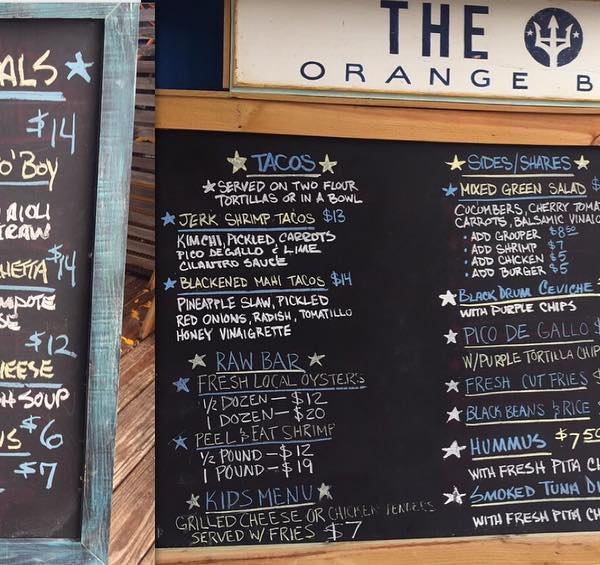 ALS
$14
O'BOY
AIOLI
$14
$12
SOUP
$6
$7
THE
ORANGE B
TACOS
SERVED ON TWO FLOUR
TORTILLAS OR IN A BOWL
JERK SHRIMP TACOS $13
KIMCHI, PICKLED CARROTS
PICO DE GALLO & LIME
CILANTRO SAUCE
BLACKENED MAHI TACOS $14
PINEAPPLE SLAW, PICKLED
RED ONIONS, RADISH, TOMATILLO
HONEY VINAIGRETTE
RAW BAR
FRESH LOCAL OYSTERS
1/2 DOZEN - $12
1 DOZEN - $20
PEEL & EAT SHRIMP
1/2 POUND - $12
1 POUND - $19
KIDS MENU
GRILLED CHEESE OR CHICKEN TENDERS
SERVED W/ FRIES $7
SIDES/SHARES
MIXED GREEN SALAD $
CUCUMBERS, CHERRY TOMAT
CARROTS, BALSAMIC VINAIG
• ADD GROUPER $8.50
• ADD SHRIMP $7
• ADD CHICKEN $5
• ADD BURGER $5
BLACK DRUM CEVICHE
WITH PURPLE CHIPS
PICO DE GALLO $
W/PURPLE TORTILLA CHIP
FRESH CUT FRIES $
BLACK BEANS & RICE $
HUMMUS $7.50
WITH FRESH PITA C
SMOKED TUNA DI
WITH FRESH PITA CH